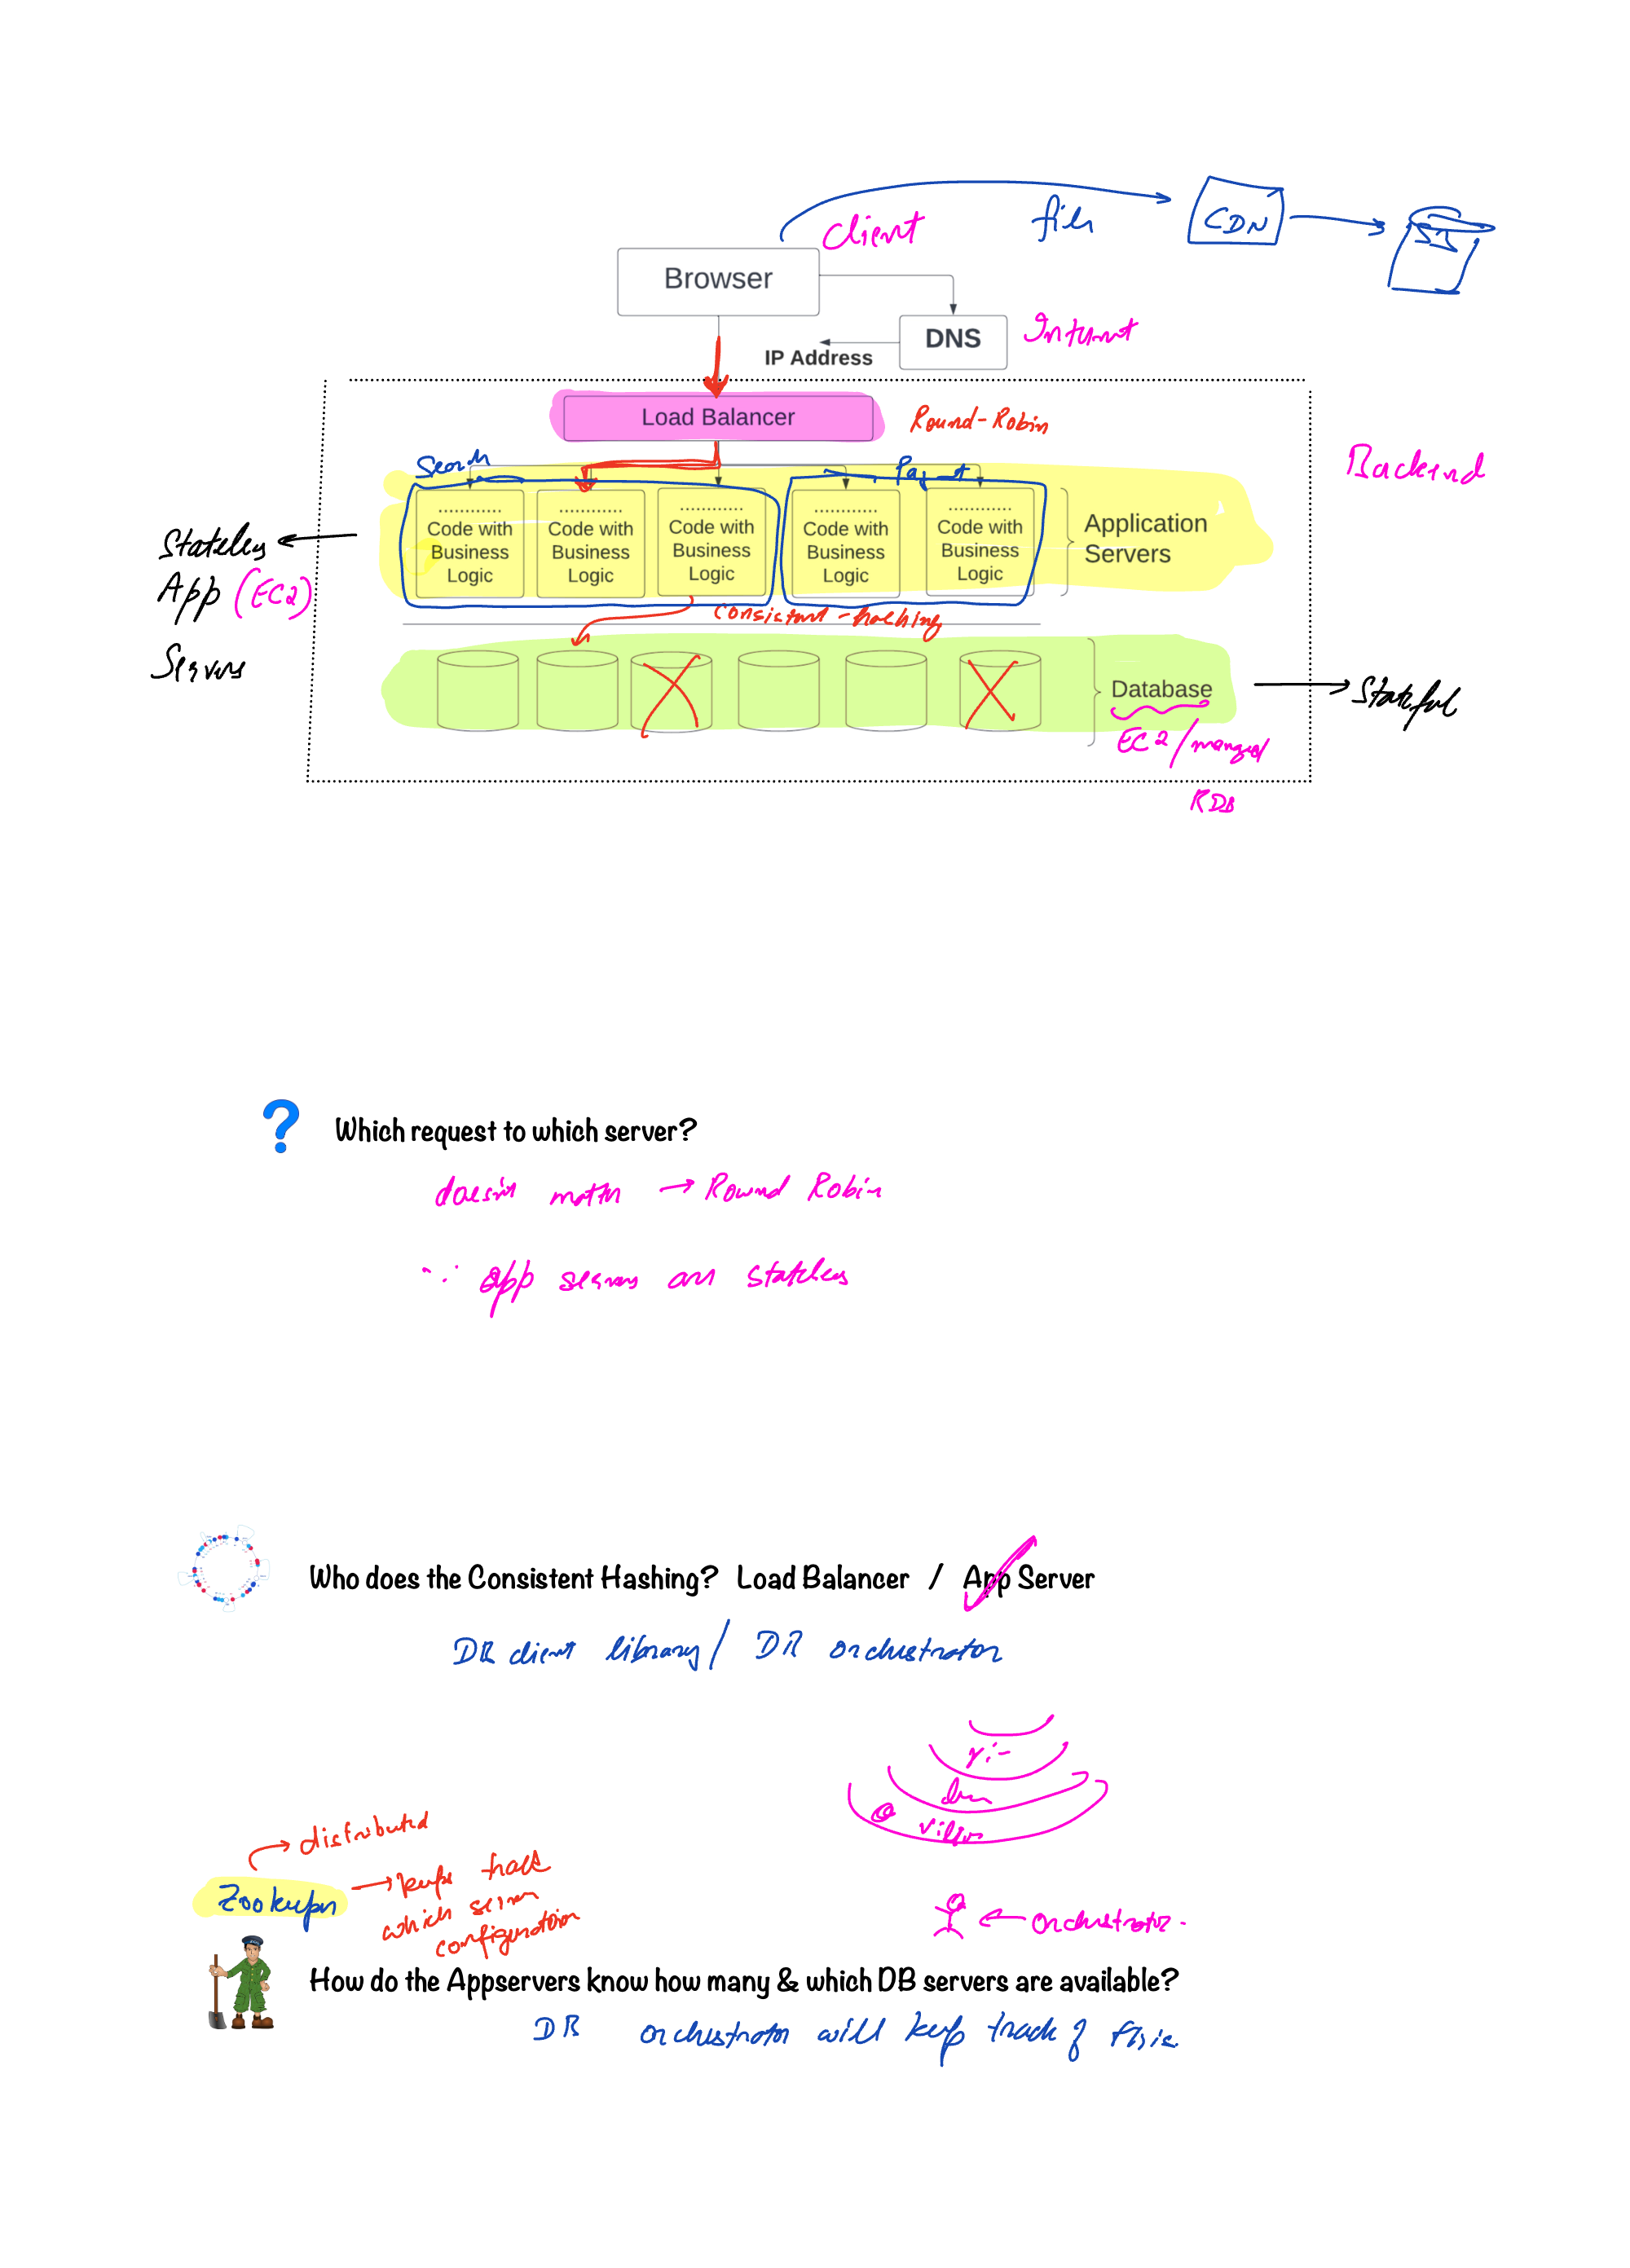 client
file
CDN
Browser
DNS
Internet
IP Address
Load Balancer
Round-Robin
Search
Backend
............
Code with
Business
Logic
............
Code with
Business
Logic
............
Code with
Business
Logic
............
Code with
Business
Logic
............
Code with
Business
Logic
Application
Servers
Stateless
App (EC2)
Servers
consistent-hashing
Database
Stateful
EC2/managed
Which request to which server?
doesn't matter → Round Robin
∵ app servers are stateless
Who does the Consistent Hashing? Load Balancer / App Server
DB client library/ DB orchestrator
distributed
Zookeeper → keeps track
which server
configuration
← orchestrator.
How do the Appservers know how many & which DB servers are available?
DB orchestrator will keep track of this.